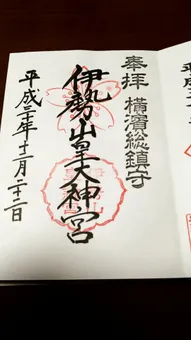 奉拝 横濱総鎮守
伊勢山皇大神宮
平成三十年十二月二十二日